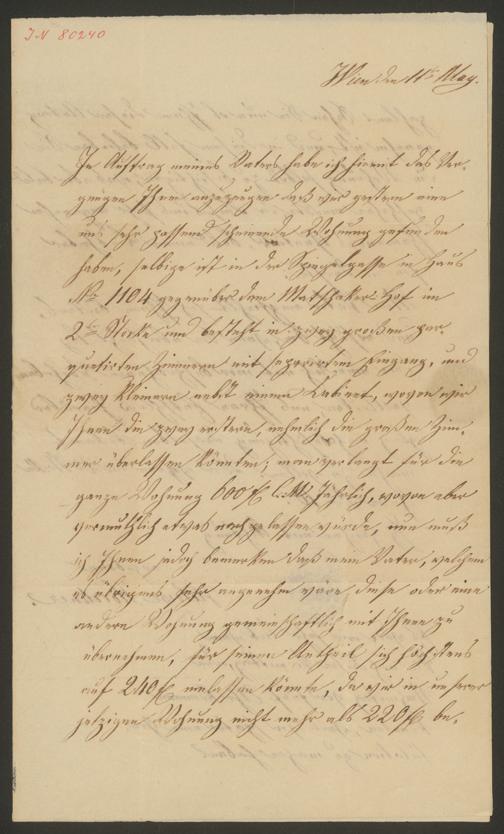 IN 80240
Wien den 11t May.
Im Auftrag meines Vaters habe ich hiemit das Ver-
gnügen Ihnen anzuzeigen daß wir gestern eine
uns sehr passend scheinende Wohnung gefunden
haben, selbige ist in der Spiegelgasse im Haus
No 1104 gegenüber dem Matschaker Hof im
2ten Stocke und besteht in zwey großen par-
quetirten Zimmern mit separirten Eingang, und
zwey kleinern nebst einem Cabinet, wovon wir
Ihnen die zwey erstern, nehmlich die großen Zim-
mer überlassen könnten; man verlangt für die
ganze Wohnung 600 f C.M. jährlich, wovon aber
vermuthlich etwas nachgelassen würde, nun muß
ich Ihnen jedoch bemerken daß mein Vater, welchem
es übrigens sehr angenehm wäre diese oder eine
andere Wohnung gemeinschaftlich mit Ihnen zu
übernehmen, für seinen Antheil sich höchstens
auf 240 f einlassen könnte, da wir in unserer
jetzigen Wohnung nicht mehr als 220 f be-